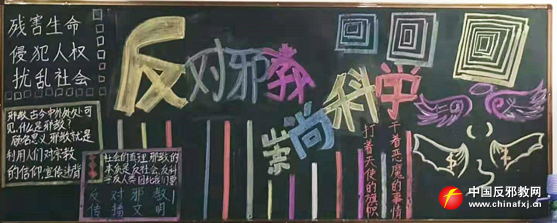 残害生命
侵犯人权
扰乱社会
反对邪教
崇尚科学
邪教古今中外处处可
见,什么是邪教?
顾名思义邪教就是
利用人们对宗教
的信仰
社会的真理,邪教的
本质是反社会、反科
学反人类
反对邪教
传播文明
打着天使的旗帜
干着恶魔的事情
中国反邪教网
www.chinafxj.cn